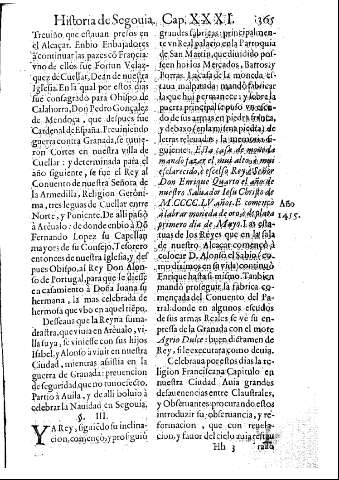 Historia de Segouia, Cap. XXXI. 365
Treuiño que estauan presos en
el Alcaçar. Enbio Enbajadores
a continuar las pazes cõ Francia:
vno de ellos fue Fortun Velaz-
quez de Cuellar, Dean de nuestra
Iglesia. En la qual por estos dias
fue consagrado para Obispo de
Calahorra, Don Pedro Gonçalez
de Mendoça, que despues fue
Cardenal de España. Preuiniendo
guerra contra Granada, se junta-
ron Cortes en nuestra villa de
Cuellar: y determinada para el
año siguiente, se fue el Rey al
Conuento de nuestra Señora de
la Armedilla, Religion Geroni-
ma, tres leguas de Cuellar entre
Norte, y Poniente. De alli passò
à Areualo: de donde enbio à Dõ
Fernando Lopez su Capellan
mayor: de su Consejo, Tesorero
entonces de nuestra Iglesia, y des-
pues Obispo, al Rey Don Alon-
so de Portugal, para que le diesse
en casamiento à Doña Iuana su
hermana, la mas celebrada de
hermosa que vbo en aquel tiẽpo.
Desseaua que la Reyna su ma-
drastra, que viuia en Areualo, vi-
lla suya, se viniesse con sus hijos
Isabel, y Alonso à viuir en nuestra
Ciudad, mientras asistia en la
guerra de Granada: preuencion
de seguridad, que no tuuo efecto.
Partio à Auila, y de alli boluio à
celebrar la Nauidad en Segouia.
§. III.
YA Rey, siguiẽdo su inclina-
cion, començò, y prosiguiò
grandes fabricas: principalmen-
te vn Real palacio en la Parroquia
de San Martin, que diuidido pos-
seen hoy los Mercados, Barros, y
Porras. La casa de la moneda es-
taua malparada: mandò fabricar
la que hui permanece: y sobre la
puerta principal se puso vn escu-
do de sus armas en piedra franca,
y debaxo (en la misma piedra) de
letras releuadas, la memoria si-
guiente: Esta casa de moneda
mandò fazer el mui alto, è mui
esclarecido, è escelso Rey è Señor
Don Enrique Quarto el año de
nuestro Saluador Iesu Christo de
M.CCCC.LV años. E començò
à labrar moneda de oro, è de plata
primero dia de Mayo. Las esta-
tuas de los Reyes que en la sala
de nuestro Alcaçar començò à
colocar D. Alonso el Sabio (co-
mo diximos en su vida) continuò
Enrique hasta si mismo. Tambien
mandò proseguir la fabrica co-
mençada del Conuento del Pa-
rral: donde en algunos escudos
de sus armas Reales se ve su en-
pressa de la Granada con el mote
Agrio Dulce: buen dictamen de
Rey, si le executara como deuia.
Celebraua por estos dias la re-
ligion Franciscana Capitulo en
nuestra Ciudad. Auia grandes
desauenencias entre Claustrales,
y Obseruantes: procurando estos
introduzir su obseruancia, y re-
formacion, que con reuela-
cion, y fauor del cielo auia restau
Hh 3 rado
Año
1455.